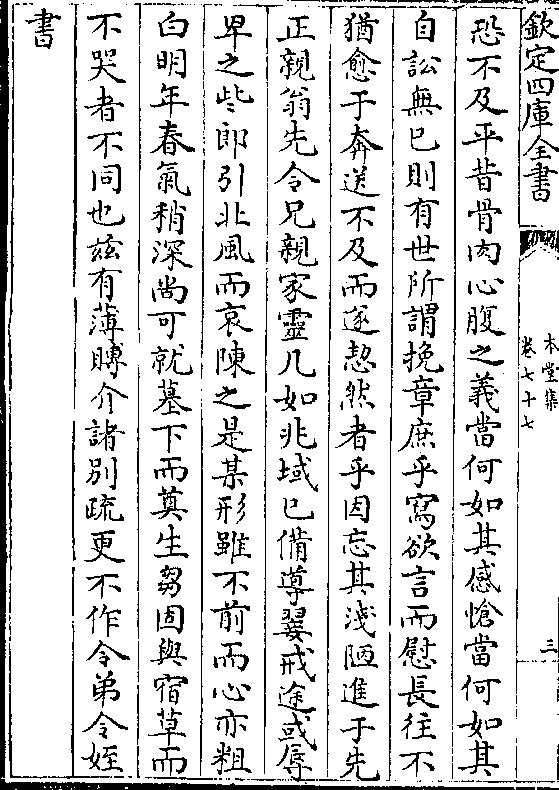 欽定四庫全書
本堂集
卷七十七
三
恐不及平昔骨肉心腹之義當何如其感愴當何如其
自訟無已則有世所謂挽章庶乎寫欲言而慰長往不
猶愈于奔送不及而遂恝然者乎因忘其淺陋進于先
正親翁先令兄親家靈几如兆域已備導翣戒途或辱
畀之些郎引北風而哀陳之是某形雖不前而心亦粗
白明年春氣稍深尚可就墓下而奠生芻固與宿草而
不哭者不同也兹有薄賻介諸别疏更不作令弟令姪
書